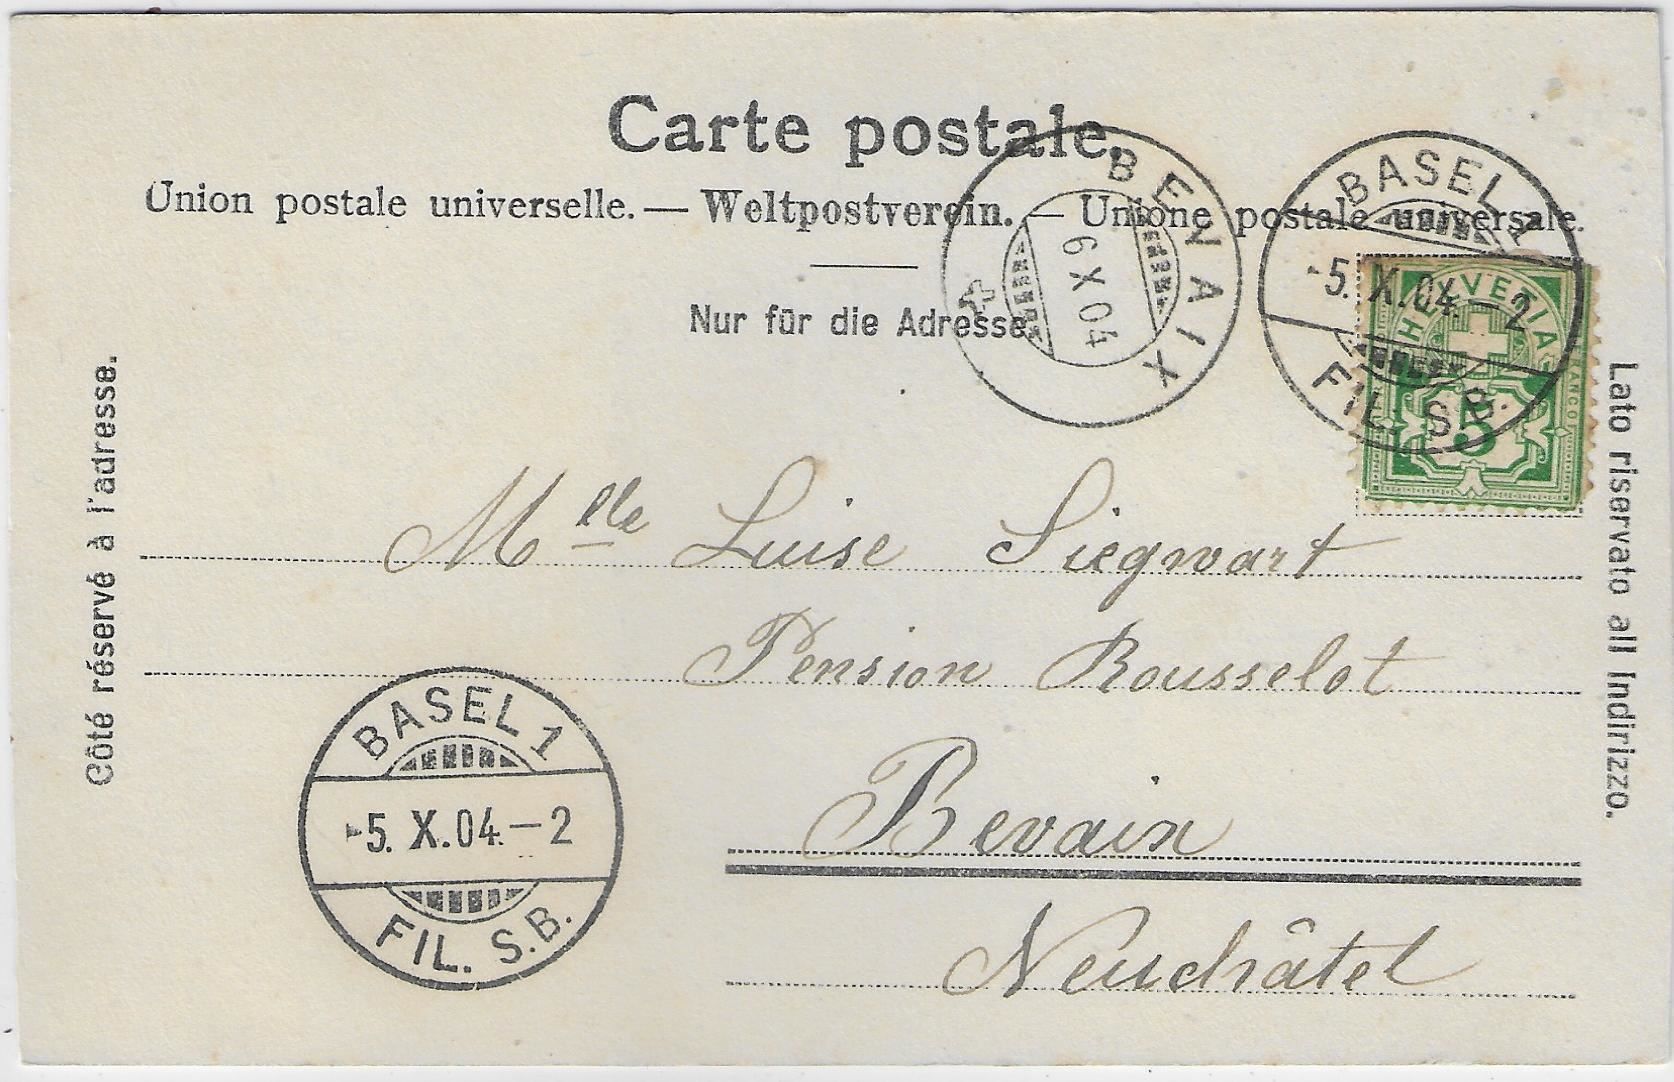 Carte postale.
Union postale universelle. — Weltpostverein. — Unione postale universale.
Nur für die Adresse.
Côté réservé à l'adresse.
Lato riservato all Indirizzo.
BENAIX
6 X 04
BASEL 1
-5. X. 04.-2
FIL. S.B.
HELVETIA
FRANCO
5
Mlle Luise Siegwart
Pension Rousselot
Bevaix
Neuchâtel
BASEL 1
-5. X. 04.-2
FIL. S.B.